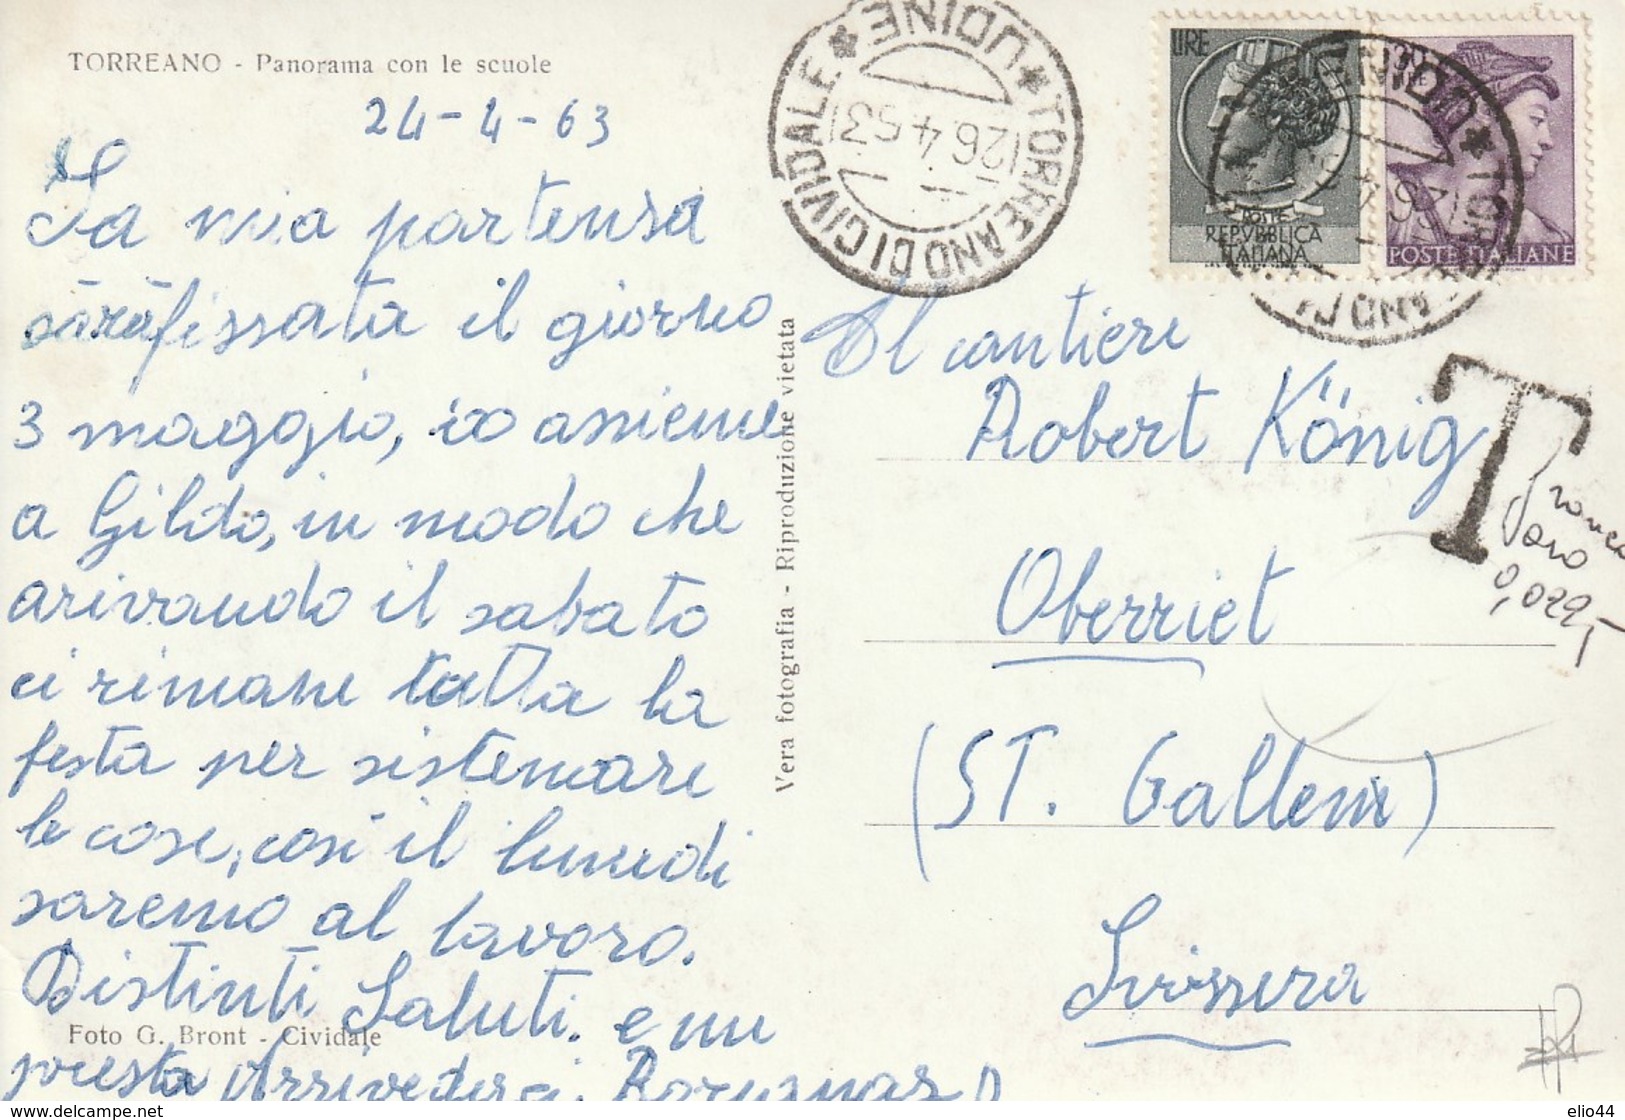 TORREANO - Panorama con le scuole
24-4-63
La mia partensa
sarà fissata il giorno
3 maggio, io assieme
a Gildo, in modo che
arivando il sabato
ci rimane tutta la
festa per sistemare
le cose, così il lunedi
saremo al lavoro.
Distinti Saluti. e un
presta Arrivederci.
Foto G. Bront - Cividale
Vera fotografia - Riproduzione vietata
UDINE * TORREANO DI CIVIDALE *
26.4.63
LIRE
POSTE
REPVBBLICA
ITALIANA
POSTE ITALIANE
UDINE
26.4
T
oro
0,029,-
Al cantiere
Robert König
Oberriet
(ST. Gallen)
Svissera
elio44